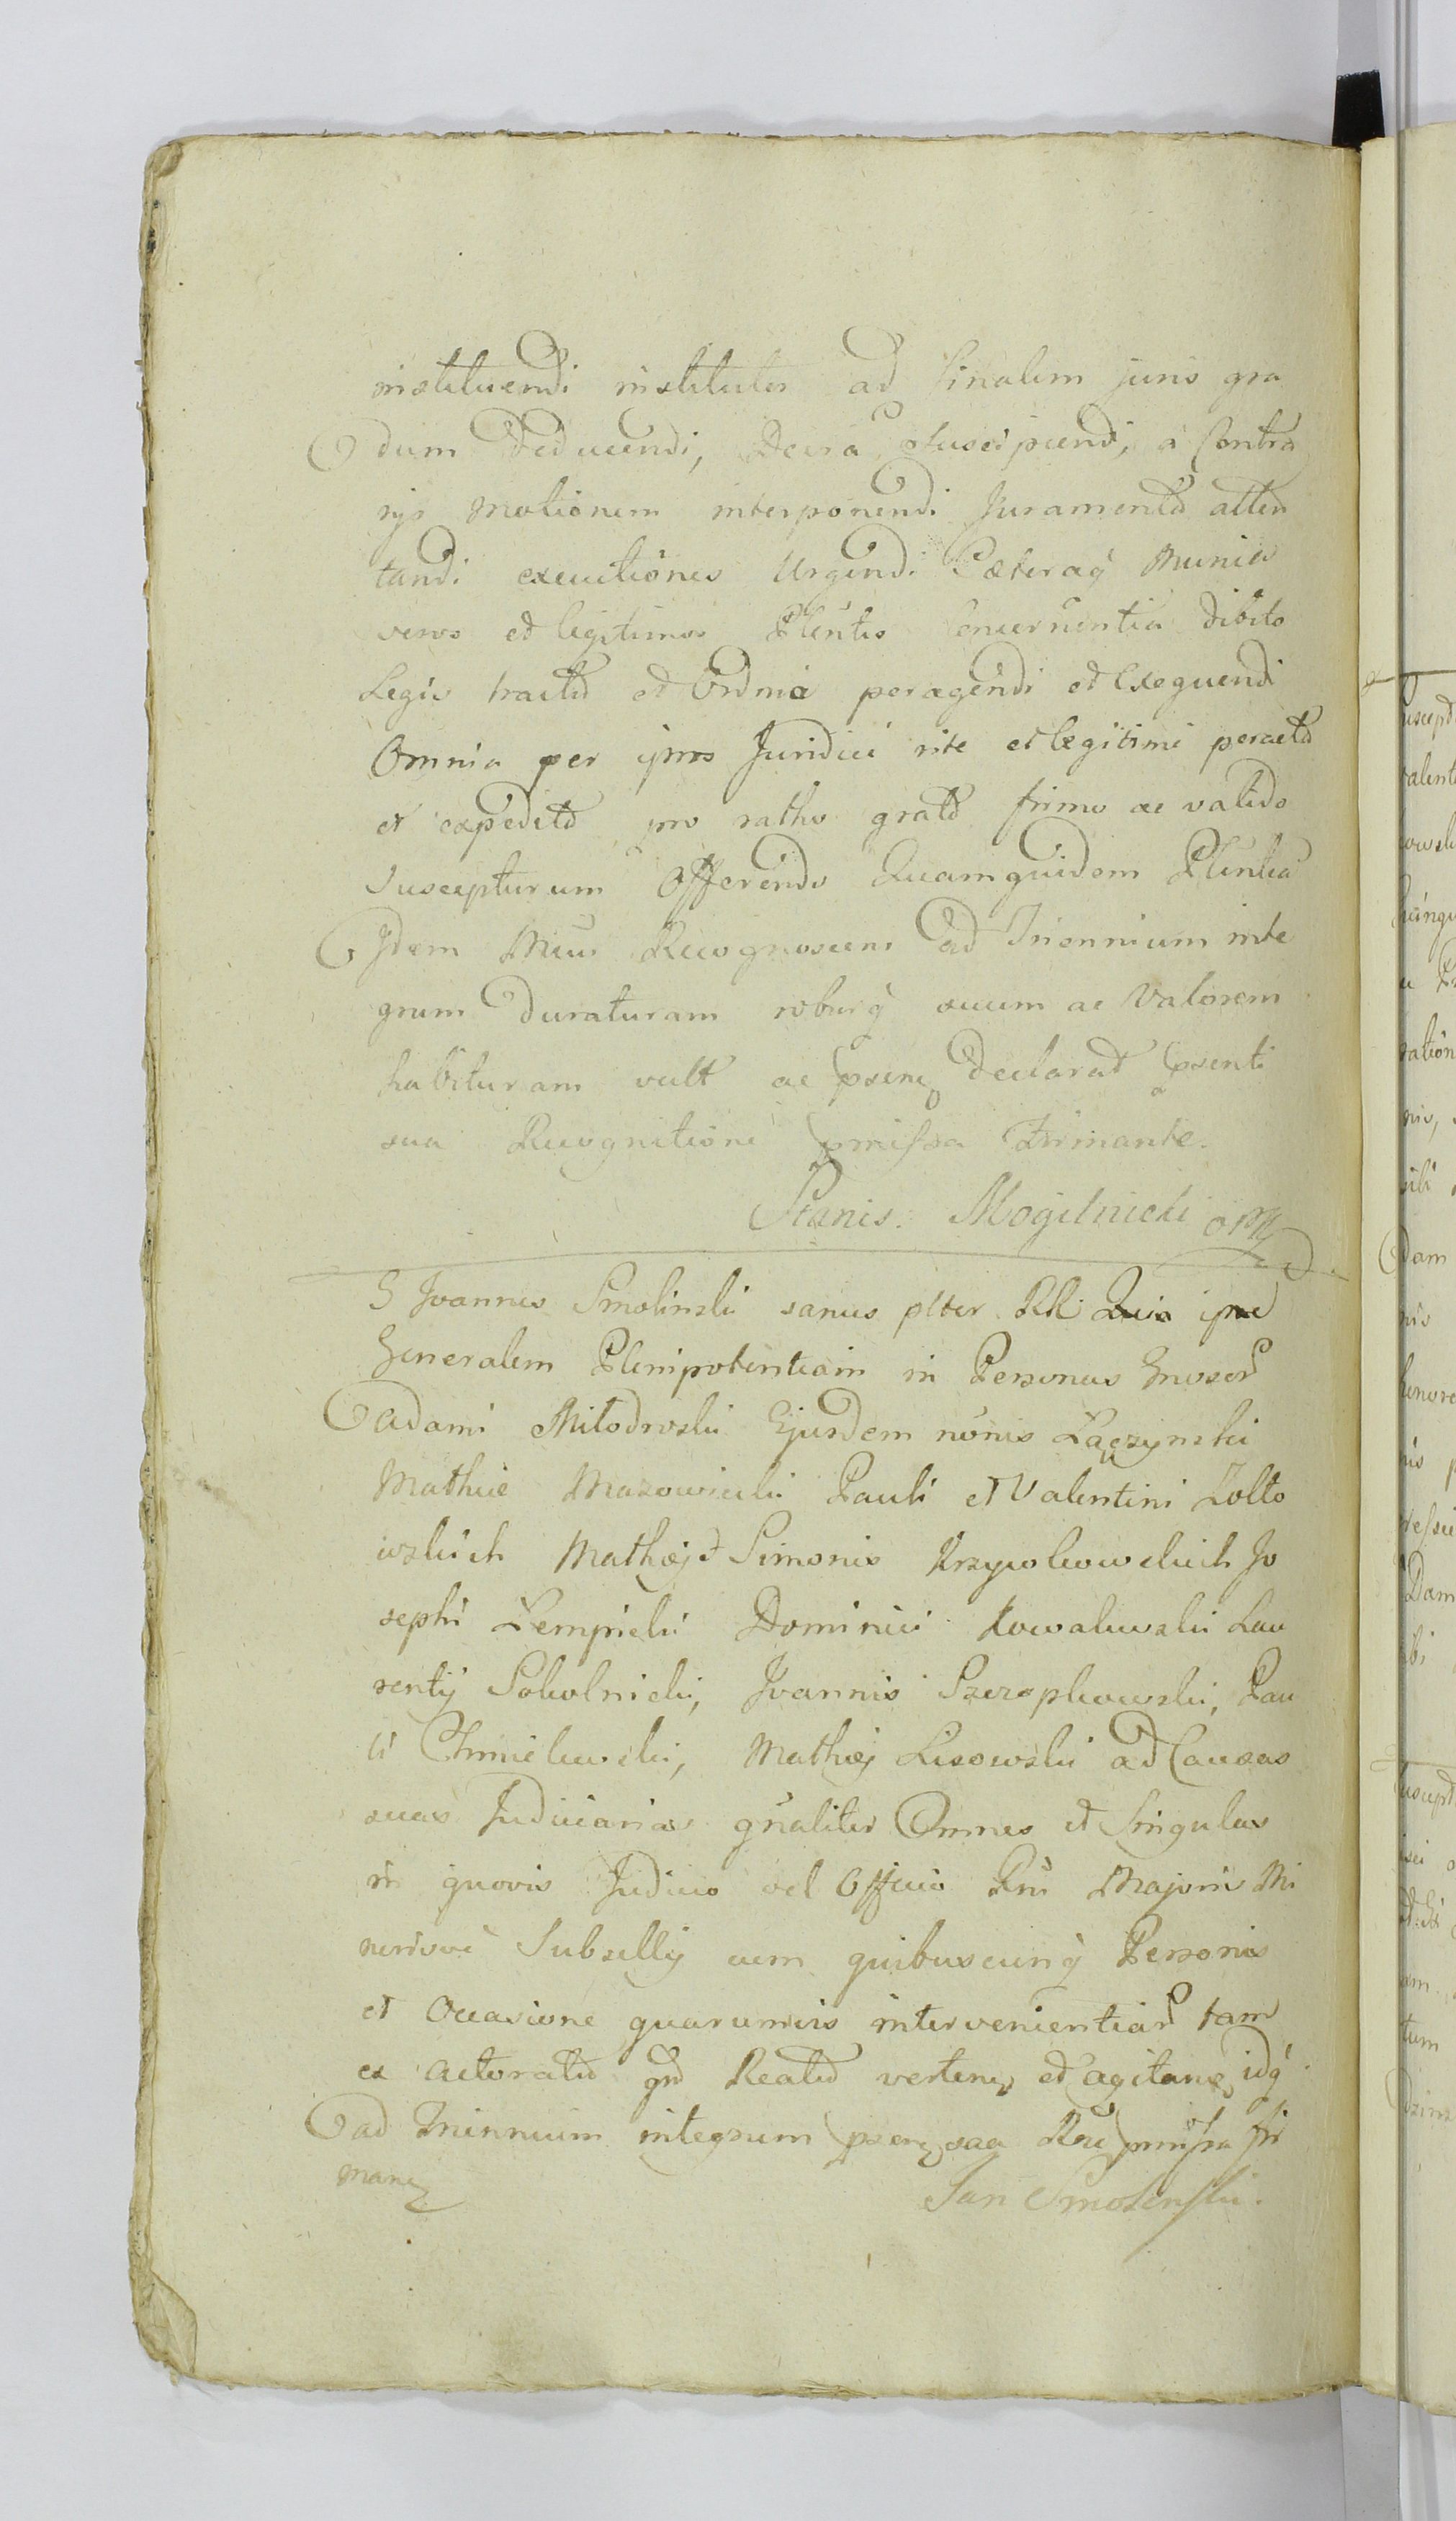 instituendi institutas ad finalem juris gra
dum deducendi, Decreta suscipiendi, à Contra
rijs motionem interponendi Juramenta atten
tandi executiones Urgendi Cæteraq Munia
veros et legitimos Plentes concernentia debito
Legis tractu et Ordine peragendi et Exequendi
Omnia per ipsos Juridice rite et legitime peracta
et expedita pro ratho grato firmo ac valido
suscepturum Offerendo Quamquidem Plentiã
Idem Mcus Recognoscens ad Triennium inte
grum duraturam roburq suum ac Valorem
habituram vult ac psene declarat psenti
sua Recognitione pmissa Firmante.
Stanis. Mogilnicki mp
G Joannes Smolinski sanus plter Rli Quia ipse
Generalem Plenipotentiam in Personas Gnosor
Adami Miłodrowski Ejusdem nõnis Łączynski
Mathiæ Mazowiecki Pauli et Valentini Zołto
wskich Mathæj et Simonis Krzywkowskich Jo
sephi Łempicki Dominici Kowalewski Lau
rentij Sokolnicki, Joannis Szczepkowski, Pau
li Chmielewski, Mathæj Lisowski ad Causas
suas Judiciarias gnaliter Omnes et Singulas
in quovis Judicio vel Officio Rni Majoris Mi
norisve Subsellij cum quibuscunq Personis
et Occasione quarumvis intervenientiar tam
ex actoratu qm Reatu verten et agitan, idq
ad Triennium integrum psen sua Rne pmissa fir
man
Jan Smolenski.